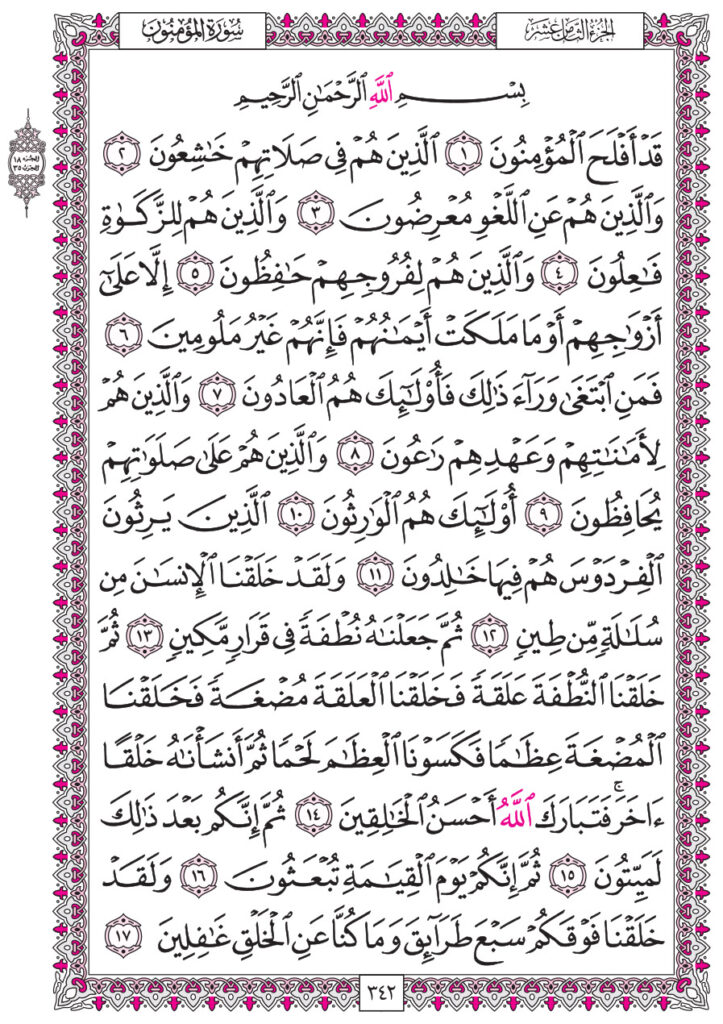 سُورَةُ المُؤْمِنُون
الجُزْءُ الثَّامِنَ عَشَرَ
بِسْمِ ٱللَّهِ ٱلرَّحْمَٰنِ ٱلرَّحِيمِ
قَدْ أَفْلَحَ ٱلْمُؤْمِنُونَ ١ ٱلَّذِينَ هُمْ فِى صَلَاتِهِمْ خَٰشِعُونَ ٢
وَٱلَّذِينَ هُمْ عَنِ ٱللَّغْوِ مُعْرِضُونَ ٣ وَٱلَّذِينَ هُمْ لِلزَّكَوٰةِ
فَٰعِلُونَ ٤ وَٱلَّذِينَ هُمْ لِفُرُوجِهِمْ حَٰفِظُونَ ٥ إِلَّا عَلَىٰٓ
أَزْوَٰجِهِمْ أَوْ مَا مَلَكَتْ أَيْمَٰنُهُمْ فَإِنَّهُمْ غَيْرُ مَلُومِينَ ٦
فَمَنِ ٱبْتَغَىٰ وَرَآءَ ذَٰلِكَ فَأُو۟لَٰٓئِكَ هُمُ ٱلْعَادُونَ ٧ وَٱلَّذِينَ هُمْ
لِأَمَٰنَٰتِهِمْ وَعَهْدِهِمْ رَٰعُونَ ٨ وَٱلَّذِينَ هُمْ عَلَىٰ صَلَوَٰتِهِمْ
يُحَافِظُونَ ٩ أُو۟لَٰٓئِكَ هُمُ ٱلْوَٰرِثُونَ ١٠ ٱلَّذِينَ يَرِثُونَ
ٱلْفِرْدَوْسَ هُمْ فِيهَا خَٰلِدُونَ ١١ وَلَقَدْ خَلَقْنَا ٱلْإِنسَٰنَ مِن
سُلَٰلَةٍ مِّن طِينٍ ١٢ ثُمَّ جَعَلْنَٰهُ نُطْفَةً فِى قَرَارٍ مَّكِينٍ ١٣ ثُمَّ
خَلَقْنَا ٱلنُّطْفَةَ عَلَقَةً فَخَلَقْنَا ٱلْعَلَقَةَ مُضْغَةً فَخَلَقْنَا
ٱلْمُضْغَةَ عِظَٰمًا فَكَسَوْنَا ٱلْعِظَٰمَ لَحْمًا ثُمَّ أَنشَأْنَٰهُ خَلْقًا
ءَاخَرَ ۚ فَتَبَارَكَ ٱللَّهُ أَحْسَنُ ٱلْخَٰلِقِينَ ١٤ ثُمَّ إِنَّكُم بَعْدَ ذَٰلِكَ
لَمَيِّتُونَ ١٥ ثُمَّ إِنَّكُمْ يَوْمَ ٱلْقِيَٰمَةِ تُبْعَثُونَ ١٦ وَلَقَدْ
خَلَقْنَا فَوْقَكُمْ سَبْعَ طَرَآئِقَ وَمَا كُنَّا عَنِ ٱلْخَلْقِ غَٰفِلِينَ ١٧
الجزء ١٨
الحزب ٣٥
٣٤٢